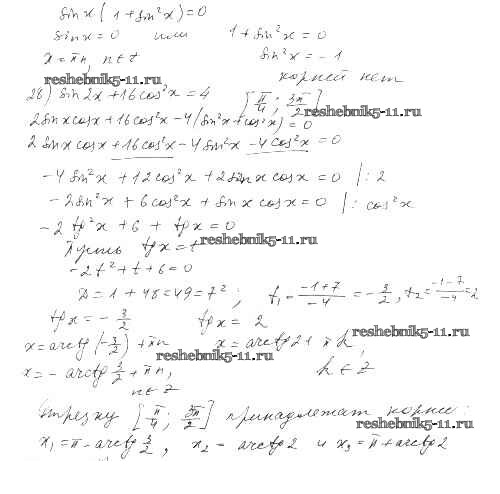 sin x (1 + sin²x) = 0
sin x = 0 или 1 + sin²x = 0
x = πn, n ∈ Z sin²x = -1
reshebnik5-11.ru корней нет
26) sin 2x + 16 cos²x = 4 [π/4; 3π/2] reshebnik5-11.ru
2 sin x cos x + 16 cos²x - 4(sin²x + cos²x) = 0
2 sin x cos x + 16 cos²x - 4 sin²x - 4 cos²x = 0
-4 sin²x + 12 cos²x + 2 sin x cos x = 0 |: 2
-2 sin²x + 6 cos²x + sin x cos x = 0 |: cos²x
-2 tg²x + 6 + tg x = 0
Пусть tg x = t reshebnik5-11.ru
-2t² + t + 6 = 0
D = 1 + 48 = 49 = 7²; t₁ = (-1+7)/-4 = -3/2, t₂ = (-1-7)/-4 = 2
tg x = -3/2 tg x = 2
reshebnik5-11.ru
x = arctg(-3/2) + πn x = arctg 2 + πk,
reshebnik5-11.ru
x = - arctg 3/2 + πn, k ∈ Z
n ∈ Z
Отрезку [π/4; 3π/2] принадлежат корни:
reshebnik5-11.ru
x₁ = π - arctg 3/2, x₂ - arctg 2 и x₃ = π + arctg 2